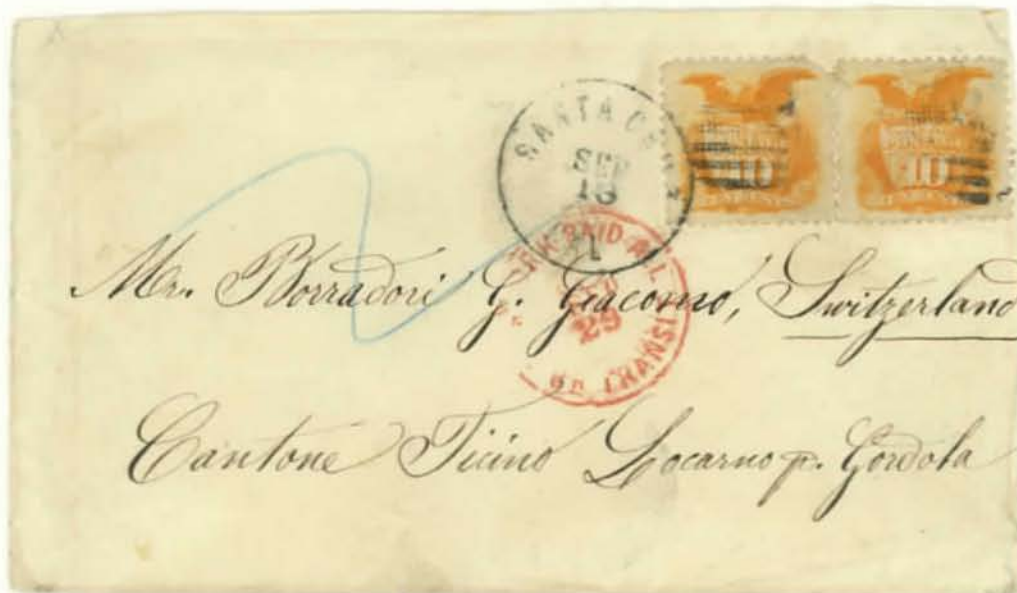 SANTA
SEP
10
PAID ALL
29
Br. TRANSIT
Mr. Borradori G. Giacomo, Switzerland
Cantone Ticino Locarno p. Gordola